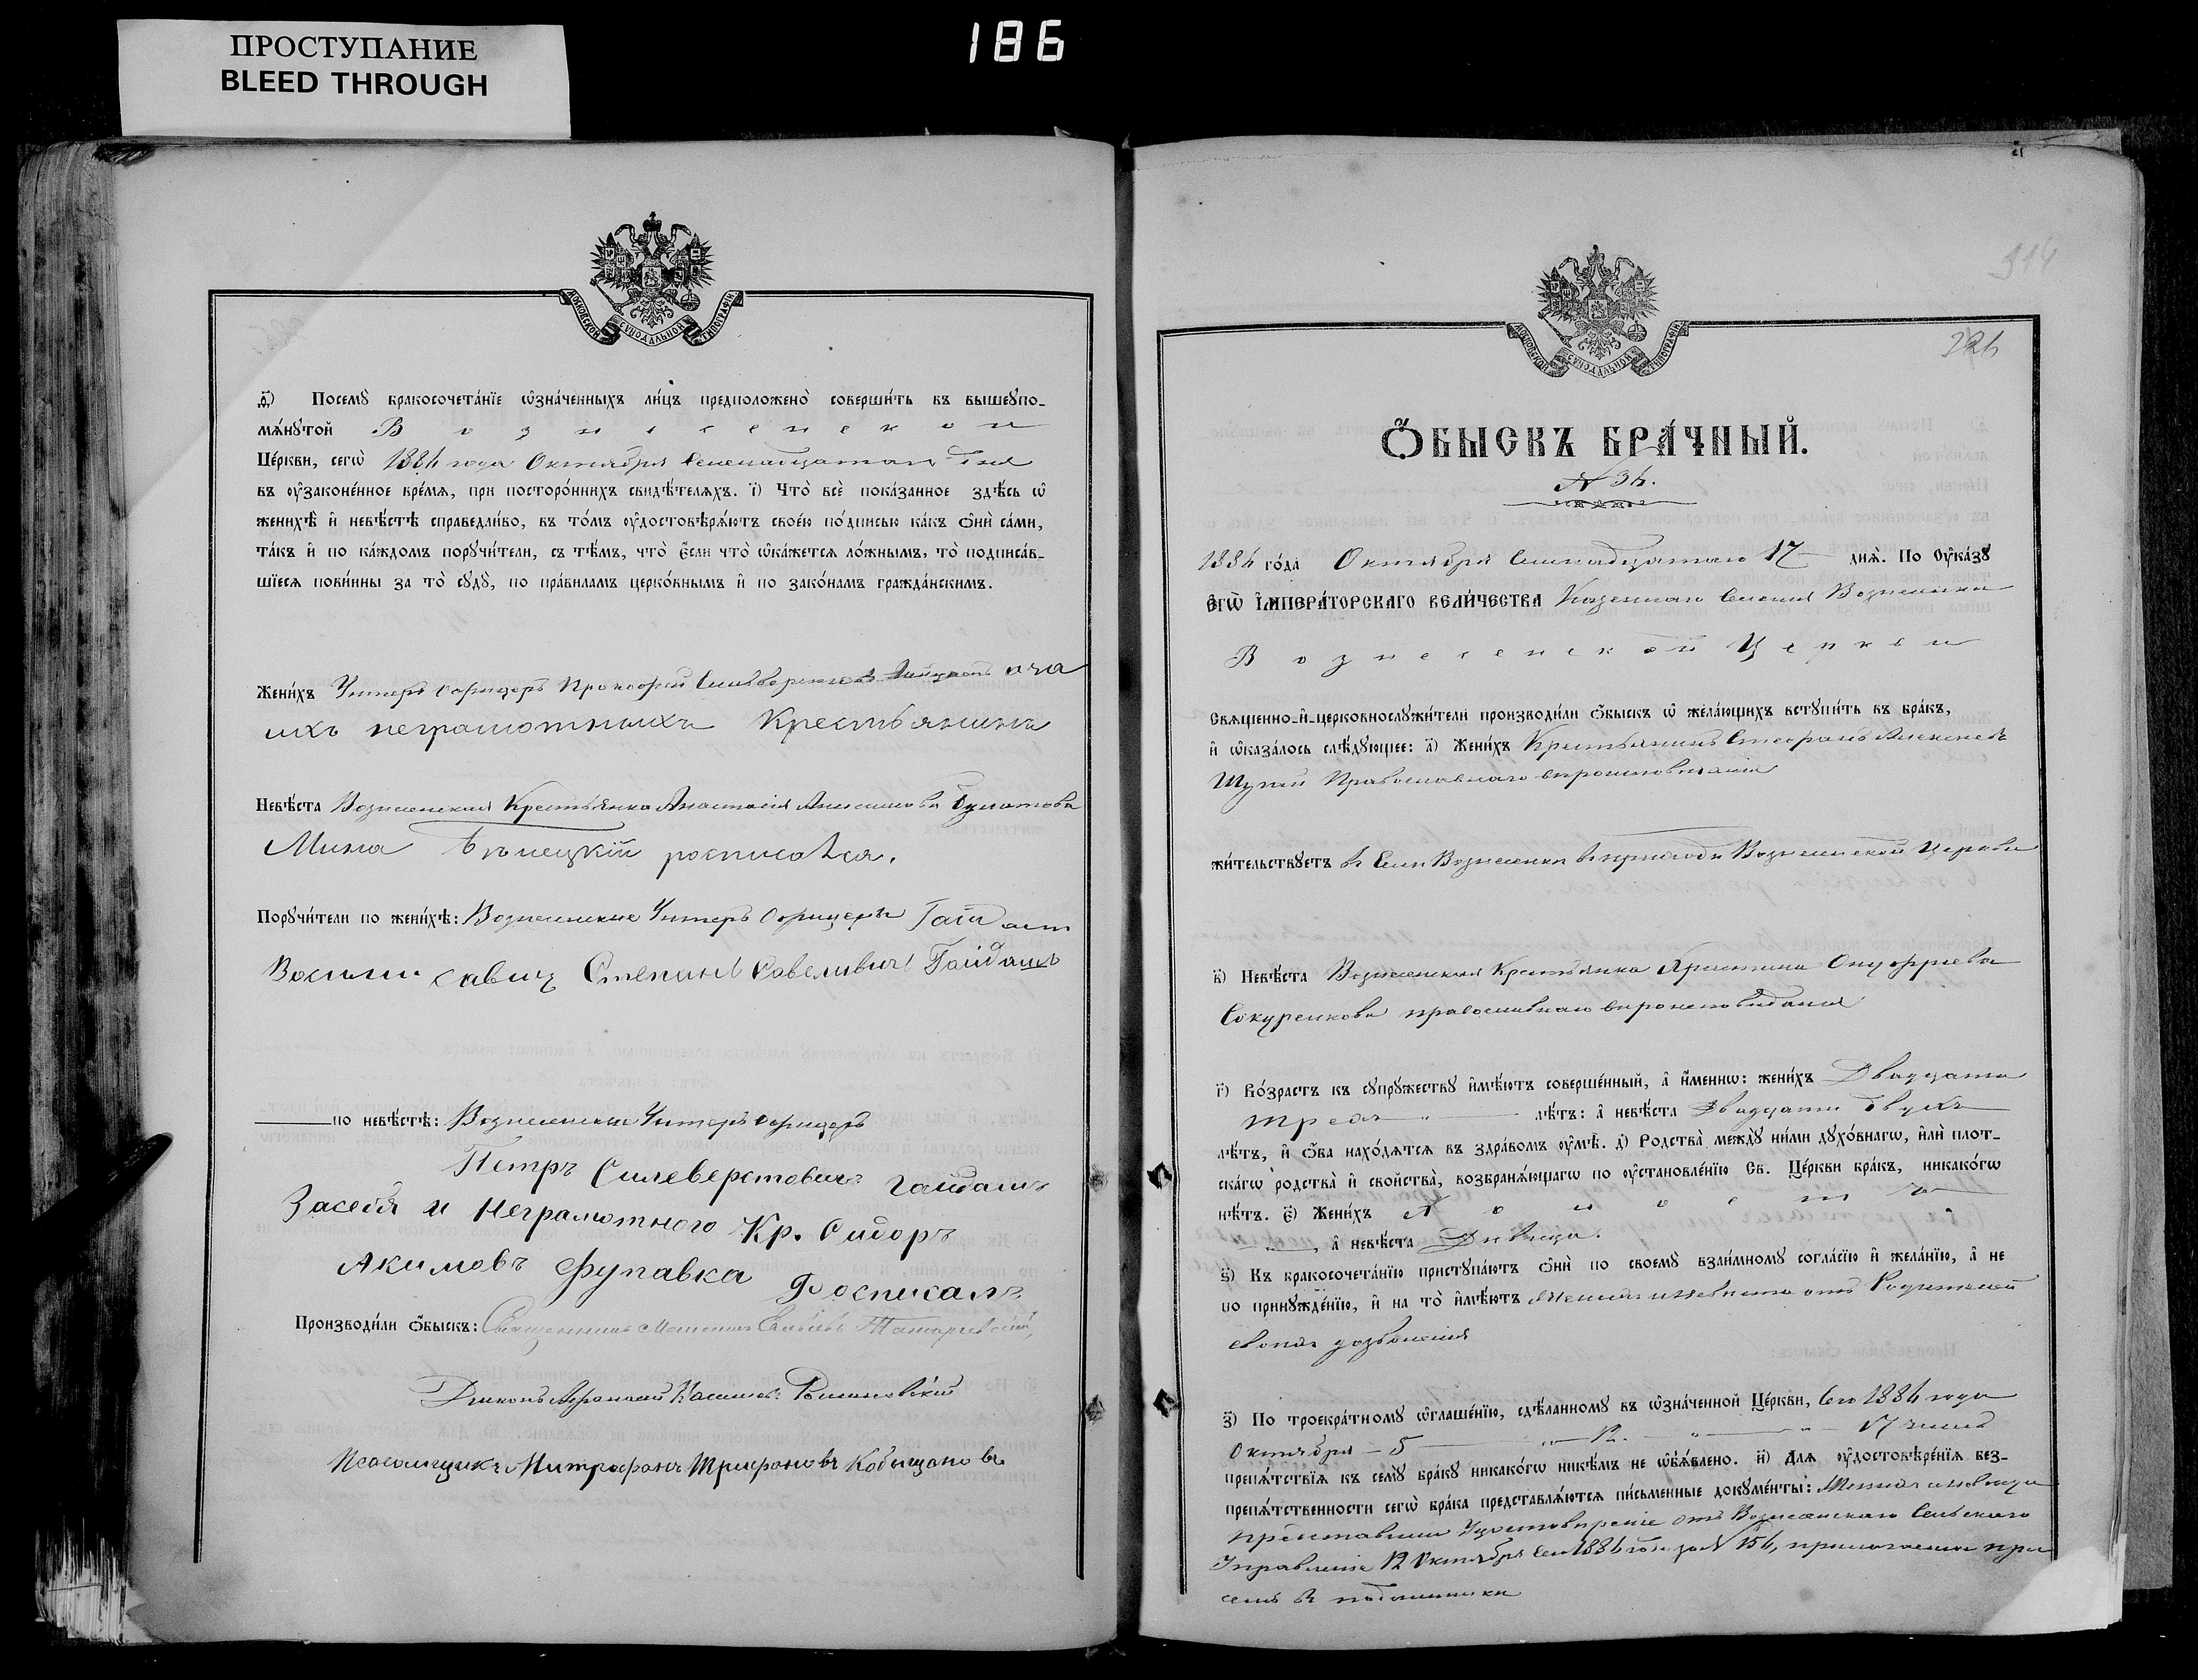 ПРОСТУПАНИЕ
BLEED THROUGH
186
МОСКОВСКОЙ СѴНОДАЛЬНОЙ ТИПОГРАФІИ.
д҃і) Посемꙋ бракосочетанїе ѡзначенныхъ лицъ предположено совершить въ вышеꙋпо-
мѧнꙋтой Вознесенской
Церкви, сегѡ 1884 года Октября Семнадцатаго дня
въ ꙋзаконенное времѧ, при постороннихъ свидѣтелѧхъ. і҃) Что все показанное здѣсь ѡ
женихѣ и невѣстѣ справедливо, въ томъ ꙋдостовѣрѧютъ своею подписью какъ ѻни сами,
такъ и по каждомъ порꙋчители, съ тѣмъ, что если что ѡкажетсѧ ложнымъ, то подписав-
шїесѧ повинны за то сꙋдꙋ, по правиламъ церковнымъ и по законамъ гражданскимъ.
Женихъ Унтеръ офицеръ Прокофій а за
ихъ неграмотныхъ Крестьянинъ
Невѣста Вознесенская Крестьянка Анастасія
Мина росписался.
Порꙋчители по женихѣ: Вознесенские Унтеръ офицеры Гайдаш
Степанъ Савеливичъ Гайдашъ
по невѣстѣ: Вознесенские Унтеръ офицеръ
Петръ Силеверстовичъ Гайдашъ
Засебя и Неграмотного Кр. Сидоръ
Акимовъ Фупавка Росписалъ
Производили ѻбыскъ: Священникъ
Диконъ Афанасій
Псаломщикъ Митрофанъ Трифоновъ Кобыщановъ
314
МОСКОВСКОЙ СѴНОДАЛЬНОЙ ТИПОГРАФІИ.
ѺБЫСКЪ БРАЧНЫЙ.
N 34.
1884 года Октября Семнадцатаго 17 днѧ. По Оуказꙋ
ЕГѠ ІМПЕРАТОРСКАГО ВЕЛИЧЕСТВА Казеннаго Селенія Вознесенки
Вознесенской Церкви
Свѧщенно-и-церковнослꙋжители производили ѻбыскъ ѡ желающихъ встꙋпить въ бракъ,
и ѡказалось слѣдꙋющее: а҃) Женихъ Крестьянинъ Стефанъ Алексѣевъ
Православнаго вѣроисповѣданія
жительствꙋетъ въ Сели Вознесенки въ приходѣ Вознесенской Церкви
в҃) Невѣста Вознесенская Крестьянка Христина Онуфріева
Сокуренкова православнаго вѣроисповѣданія
г҃) Возрастъ къ сꙋпрꙋжествꙋ имѣютъ совершенный, а именнѡ: женихъ Двадцати
трехъ лѣтъ: а невѣста двадцати двухъ
лѣтъ, и ѻба находѧтсѧ въ здравомъ ꙋмѣ. д҃) Родства междꙋ ними дꙋховнагѡ, или плот-
скагѡ родства и свойства, возбранѧющагѡ по ꙋстановленїю Св. Церкви бракъ, никакогѡ
нѣтъ. е҃) Женихъ Холостъ
, а невѣста Дѣвица.
ѕ҃) Къ бракосочетанїю пристꙋпаютъ ѻни по своемꙋ взаимномꙋ согласїю и желанїю, а не
по принꙋжденїю, и на то имѣютъ Женихъ и невѣста отъ Родителей
своихъ дозволения
з҃) По троекратномꙋ ѡглашенїю, сдѣланномꙋ въ ѡзначенной Церкви, Сего 1884 года
Октября - 5 - „ - 12. „ - 17 числъ
препѧтствїѧ къ семꙋ бракꙋ никакогѡ никѣмъ не ѡбъѧвлено. и҃) Длѧ ꙋдостовѣренїѧ без-
препѧтственности сегѡ брака представлѧютсѧ письменные докꙋменты: Женихъ и невѣста
представили Удостовѣреніе отъ Вознесенскаго Сельскаго
Управленія 12 Октября Сего 1884 года за N 154, прилагаемое при
семъ въ подлиннике